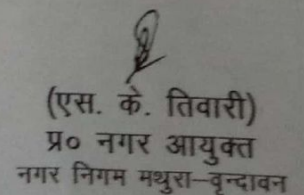 (एस. के. तिवारी)
प्र० नगर आयुक्त
नगर निगम मथुरा–वृन्दावन